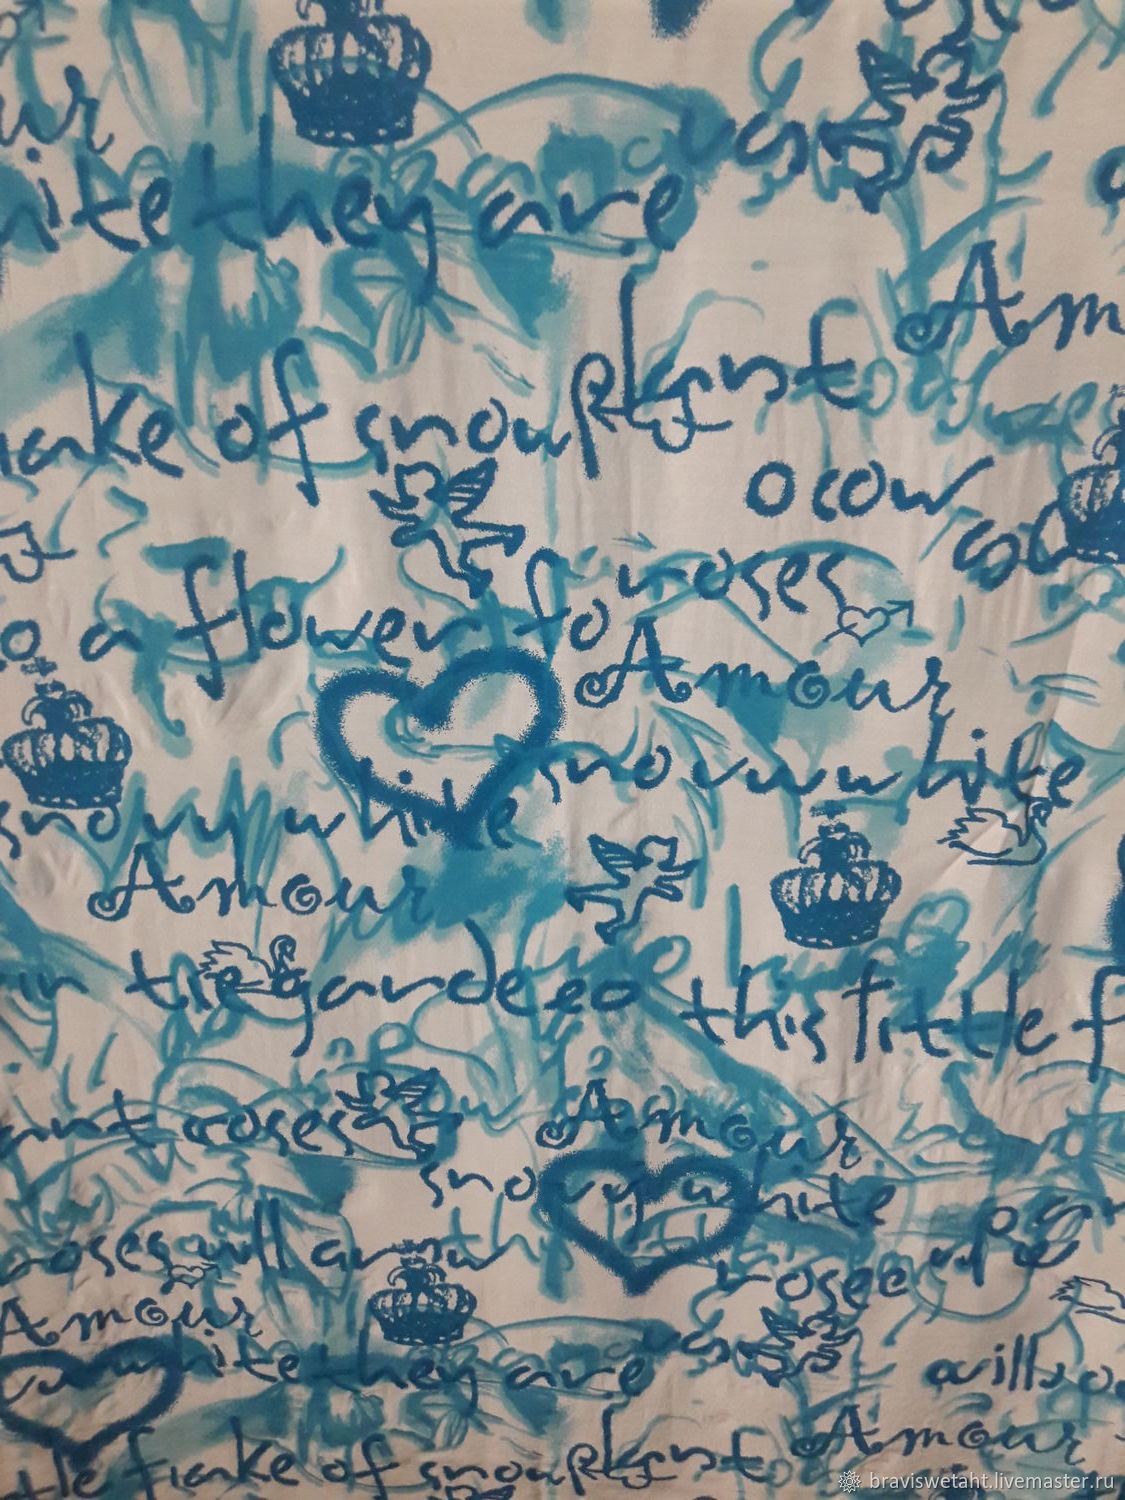 ur
hite they are
Am
flake of snow plant
ocow
o a flower fo roses
Amour
snovwwhite
snovy white
Amour
in tregardeeo this little f
ant roses
Amour
snovy white
roses will
rosee
Amour
white they are
will
Amour
tle flake of snow plant
braviswetaht.livemaster.ru